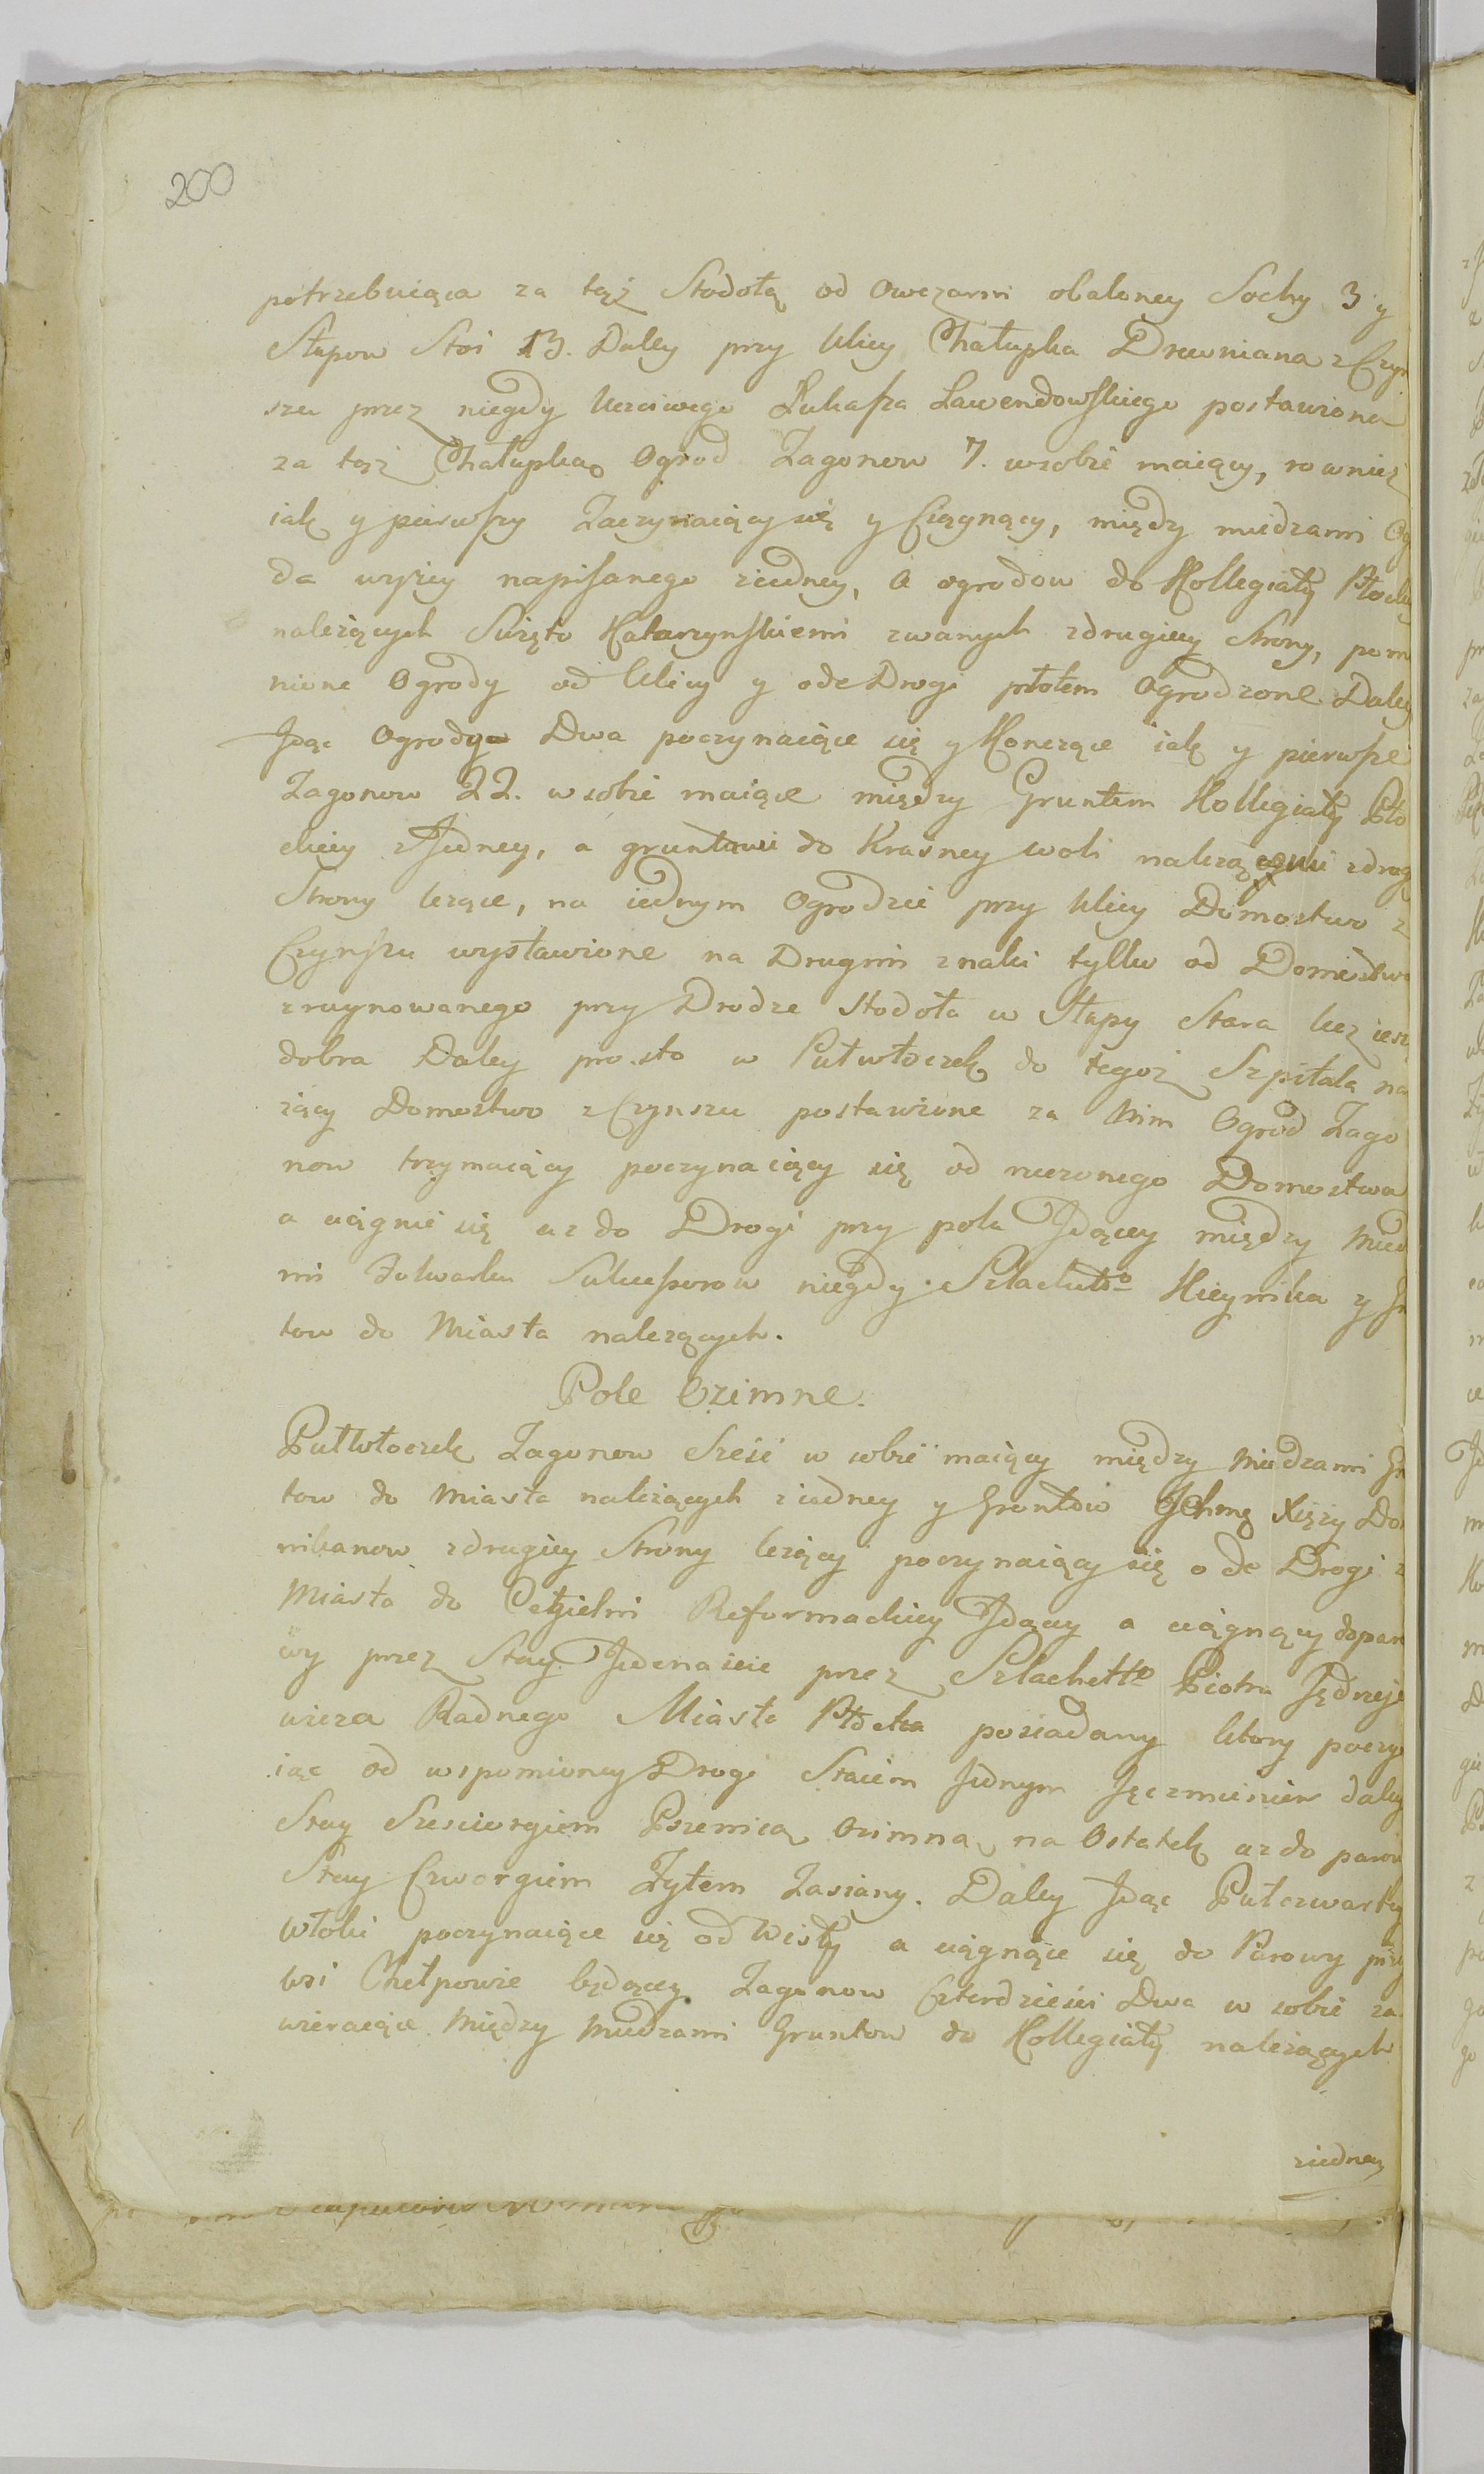 200
potrzebuiąca za tąż Stodołą od Owczarni obaloney Sochy 3 y
Słupow Stoi 13. Daley przy Ulicy Chałupka Drewniana z Czyn
szu przez niegdy Uczciwego Łukasza Lawendowskiego postawiona
za tąż Chałupką Ogrod Zagonow 7. w sobie maiący, rowniez
iak y pierwszy Zaczynaiący się y Ciągnący, między miedzami Og
da wyżey napisanego ziedney, a ogrodow do Kollegiaty Płocki
należących Swięto Katarzynskiemi zwanych zdrugiey Strony, pom
nione Ogrody od Ulicy y ode Drogi płotem Ogrodzone Daley
Jdąc Ogrody Dwa poczynaiące się y Konczące iak y pierwsze
Zagonow 22. w sobie maiące między Gruntem Kollegiaty Pło
ckiey z Jedney, a gruntami do Krasney woli należącemi zdrug
Strony leżące, na iednym Ogrodzie przy Ulicy Domostwo z
Czynszu wystawione na Drugim znaki tylko od Domostwa
zruynowanego przy Drodze Stodoła w Słupy Stara lecz iesz
dobra Daley prosto w Pułwłoczek do tegoż Szpitala na
żący Domostwo z Czynszu postawione za Nim Ogrod Zago
now trzymaiący poczynaiący się od rzeczonego Domostwa
a ciągnie się az do Drogi przy polu Jdącey między Mied
mi Folwarku Sukcessorow niegdy Szlachetto Kieymika y Gr
tow do Miasta należących.
Pole Ozimne.
Pułwłoczek Zagonow Szesć w sobie maiący między Miedzami Gr
tow do Miasta należących ziedney y Grontow Jchmę Xięży Do
mikanow zdrugiey Strony leżący poczynaiący się ode Drogi z
Miasta do Cegielni Reformackiey Jdącey a ciągnący dopar
wy przez Stay Jedenascie przez Szlachetto Piotra Jędrzeje
wicza Radnego Miasta Płocka posiadany ktory poczy
iąc od wspomioney Drogi Staiem Jednym Jęczmieniem daley
Stay Szesciorgiem Pszenicą Ozimną, na Ostatek az do parow
Stay Czworgiem Zytem Zasiany. Daley Jdąc Pułczwartey
Włoki poczynaiące się od Wisły a ciągnące się do Parowy przy
wsi Chełpowie będącey Zagonow Czterdzieści Dwa w sobie za
wieraiące Między Miedzami Gruntow do Kollegiaty należących
ziedney